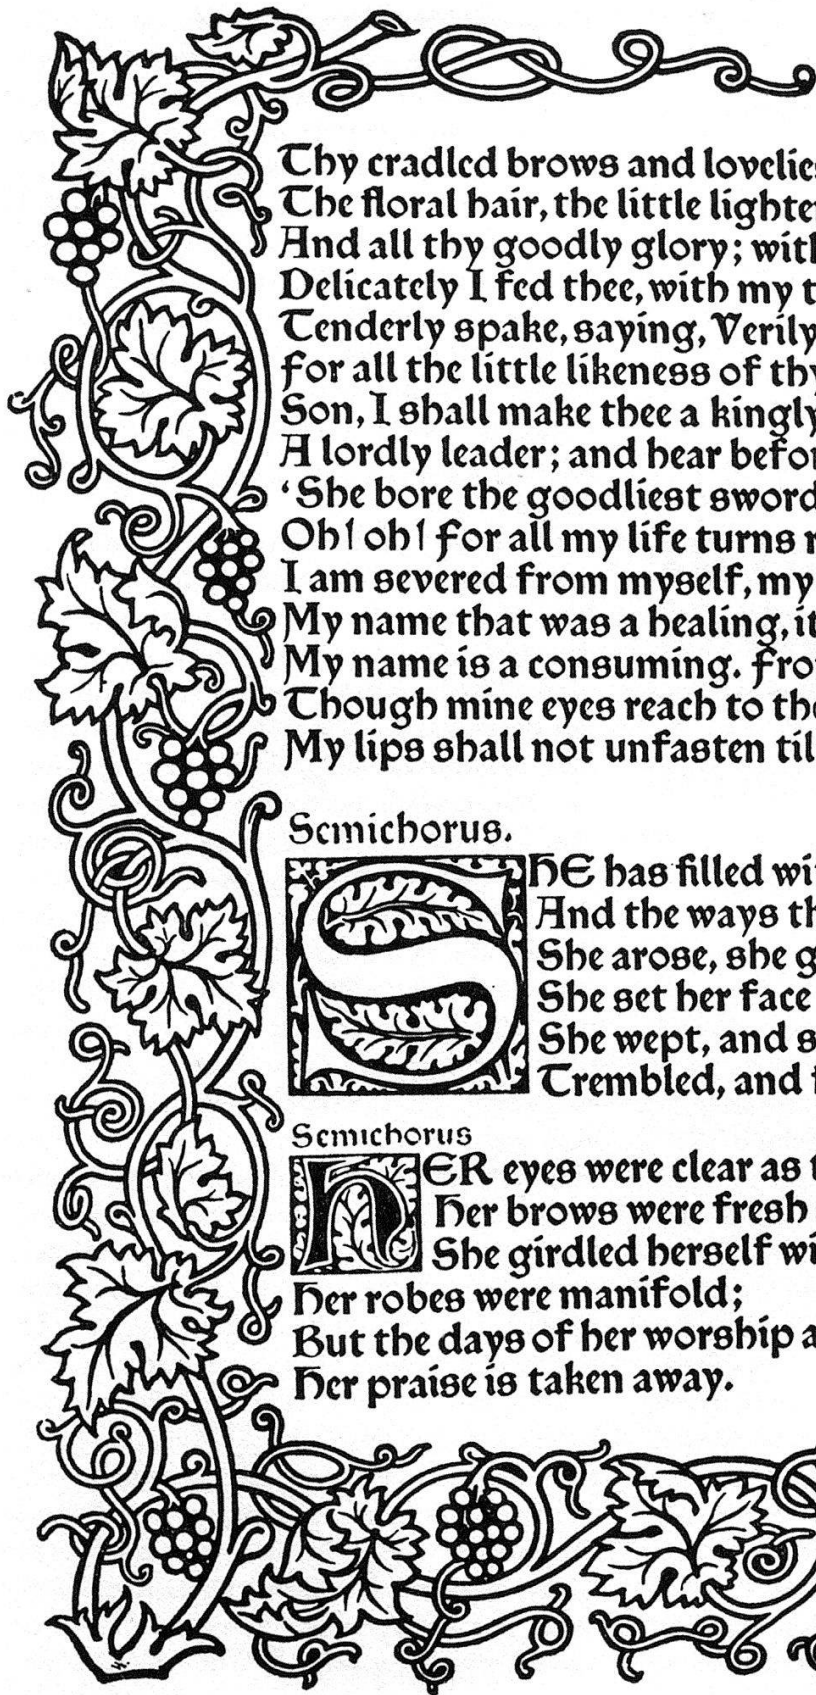 Thy cradled brows and lovelies
The floral hair, the little lighte
And all thy goodly glory; with
Delicately I fed thee, with my t
Tenderly spake, saying, Verily
For all the little likeness of thy
Son, I shall make thee a kingly
A lordly leader; and hear befor
'She bore the goodliest sword
Oh! oh! For all my life turns r
I am severed from myself, my
My name that was a healing, it
My name is a consuming. From
Though mine eyes reach to the
My lips shall not unfasten til
Semichorus.
SHE has filled wi
And the ways th
She arose, she g
She set her face
She wept, and s
Trembled, and
Semichorus
HER eyes were clear as t
Her brows were fresh
She girdled herself wi
Her robes were manifold;
But the days of her worship a
Her praise is taken away.